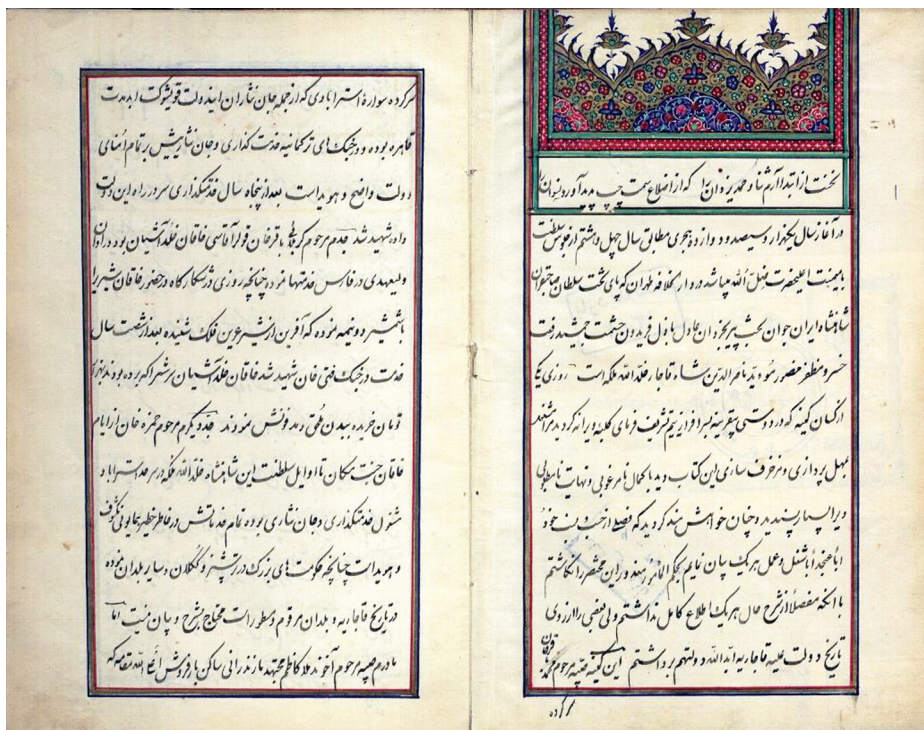 نخست از ابتدا آرم ثنا و حمد یزدان را که از اضلاع سمت چپ پدید آورد نسوان را
در آغاز سال یکهزار و سیصد و دوازده هجری مطابق سال چهل و هشتم از جلوس سلطنت
اعلیحضرت ظل الله میباشد در دار الخلافه طهران که پای تخت سلطان صاحبقران
شاهنشاه ایران جوان بخت پیر خرد ان عادل باذل فریدون حشمت جمشید رفعت
خسرو مظفر منصور مؤید ناصر الدین شاه قاجار خلد الله ملکه است روزی یکی
از کسان کمینه که در دوستی بیقرینه سرافرازیم تشریف فرمای کلبه ویرانه گردید مرا مشتغل
بمهمل پردازی و مزخرف سازی این کتاب دید با کمال نامرغوبی و نهایت نامطلوبی
ویرا بسیار پسندیده و چنان خواهش مند گردید که از حسب و نسب خود
اباً عن جد با شغل و عمل هر یک بیان نمایم بحکم المامور معذور این مختصر را نگاشتم
با آنکه مفصلاً از شرح حال هر یک اطلاع کامل نداشتم ولی بعضی را از روی
تاریخ دولت علیه قاجاریه ابد الله دولتهم برداشتم این کمینه صبیه مرحوم محمد باقرخان
سرکرده
سرکرده سواره استرابادی که از جمله جان نثاران ایندولت قویشوکت ابد مدت
قاهره بوده و در جنگ های ترکمانیه خدمت گذاری و جان نثاریش بر تمام امنای
دولت واضح و هویداست بعد از پنجاه سال خدمتگذاری سر در راه این دولت
داده شهید شد جدم مرحوم باقر خان قولر آقاسی خاقان خلد آشیان بود در اوان
ولیعهدی در فارس خدمتها نموده چنانچه روزی در شکارگاه در حضور خاقان شیر را
با شمشیر دو نیمه نموده که آفرین از شیر عرین فلک شنیده بعد از شصت سال
خدمت در جنگ فتحی خان شهید شد خاقان خلد آشیان سرش را که برده بودند بهزار
تومان خریده ببدن ملحق و دفنش نمودند جد دیگرم مرحوم حمزه خان از ایام
خاقان جنت مکان تا اوایل سلطنت این شاهنشاه خلد الله ملکه در سرحد استراباد
مشغول خدمتگذاری و جان نثاری بوده تمام خدماتش در خاطر خطیر همایونی مکشوف
و هویداست چنانچه حکومت های بزرگ در تربت و گوکلان و سایر بلدان نموده
در تاریخ قاجاریه و بلدان مرقوم و مسطور است محتاج بشرح و بیان نیست اما
مادرم صبیه مرحوم آخوند ملا کاظم مجتهد مازندرانی ساکن بارفروش اعلی الله مقامه که